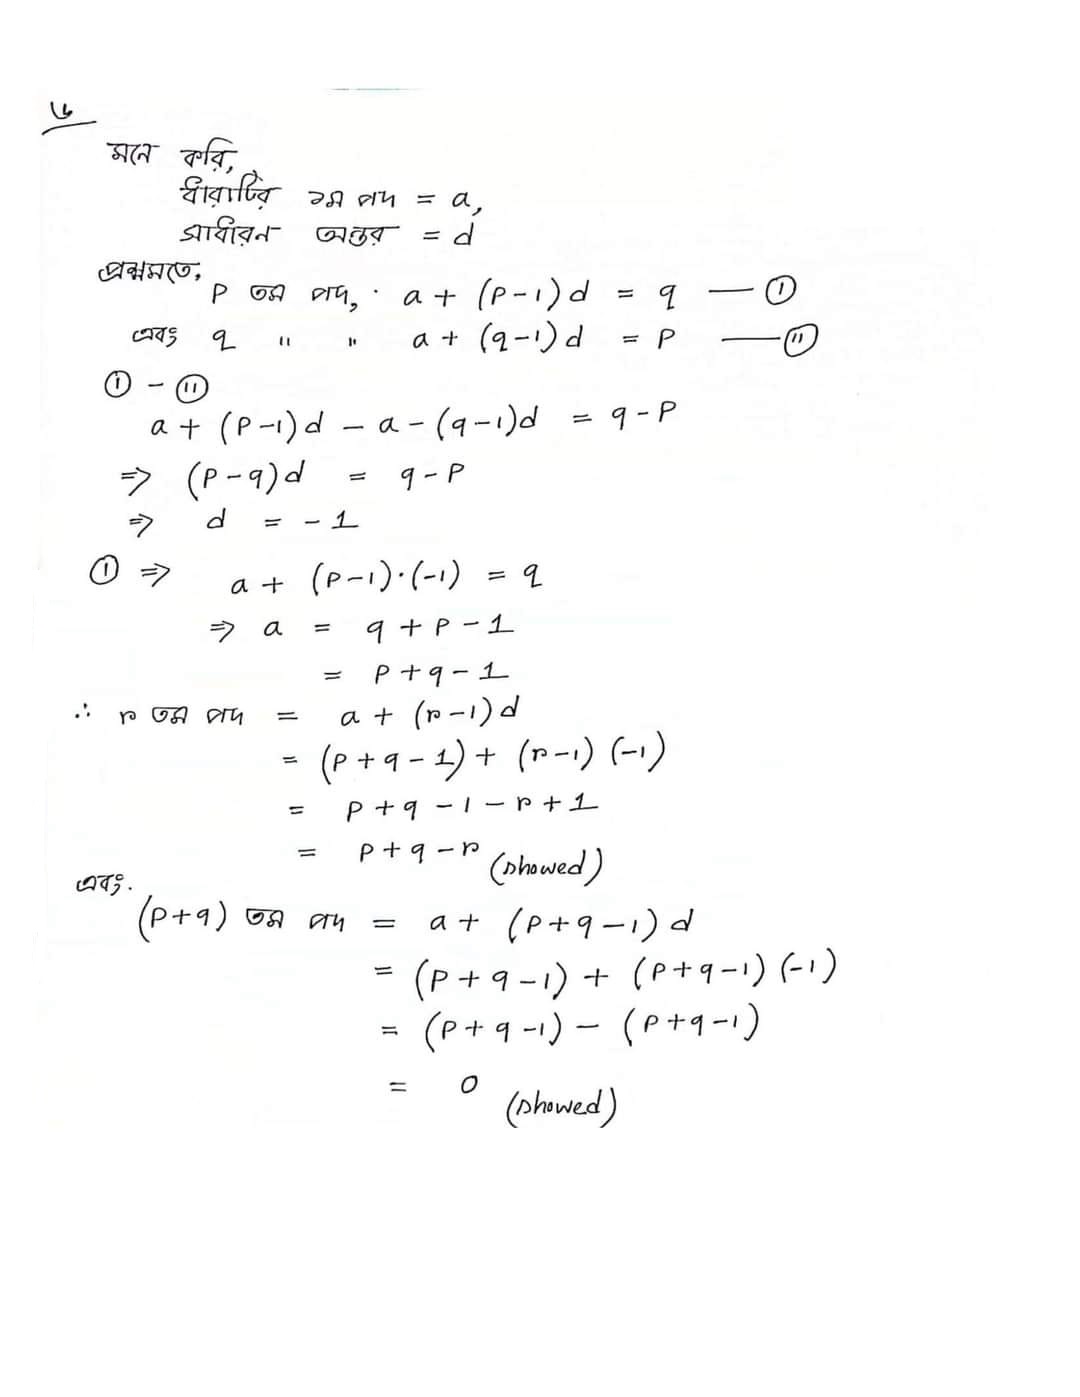 ৬
মনে করি,
ধারাটির ১ম পদ = a,
সাধারন অন্তর = d
প্রশ্নমতে,
P তম পদ, a + (P-1)d = q — (i)
এবং q " " a + (q-1)d = P — (ii)
(i) - (ii)
a + (P-1)d - a - (q-1)d = q - P
⇒ (P-q)d = q-P
⇒ d = -1
(i) ⇒ a + (P-1)·(-1) = q
⇒ a = q + P - 1
= P + q - 1
∴ r তম পদ = a + (r-1)d
= (P + q - 1) + (r-1) (-1)
= P + q - 1 - r + 1
= P + q - r (showed)
এবং.
(P+q) তম পদ = a + (P+q-1)d
= (P+q-1) + (P+q-1)(-1)
= (P+q-1) - (P+q-1)
= 0 (showed)